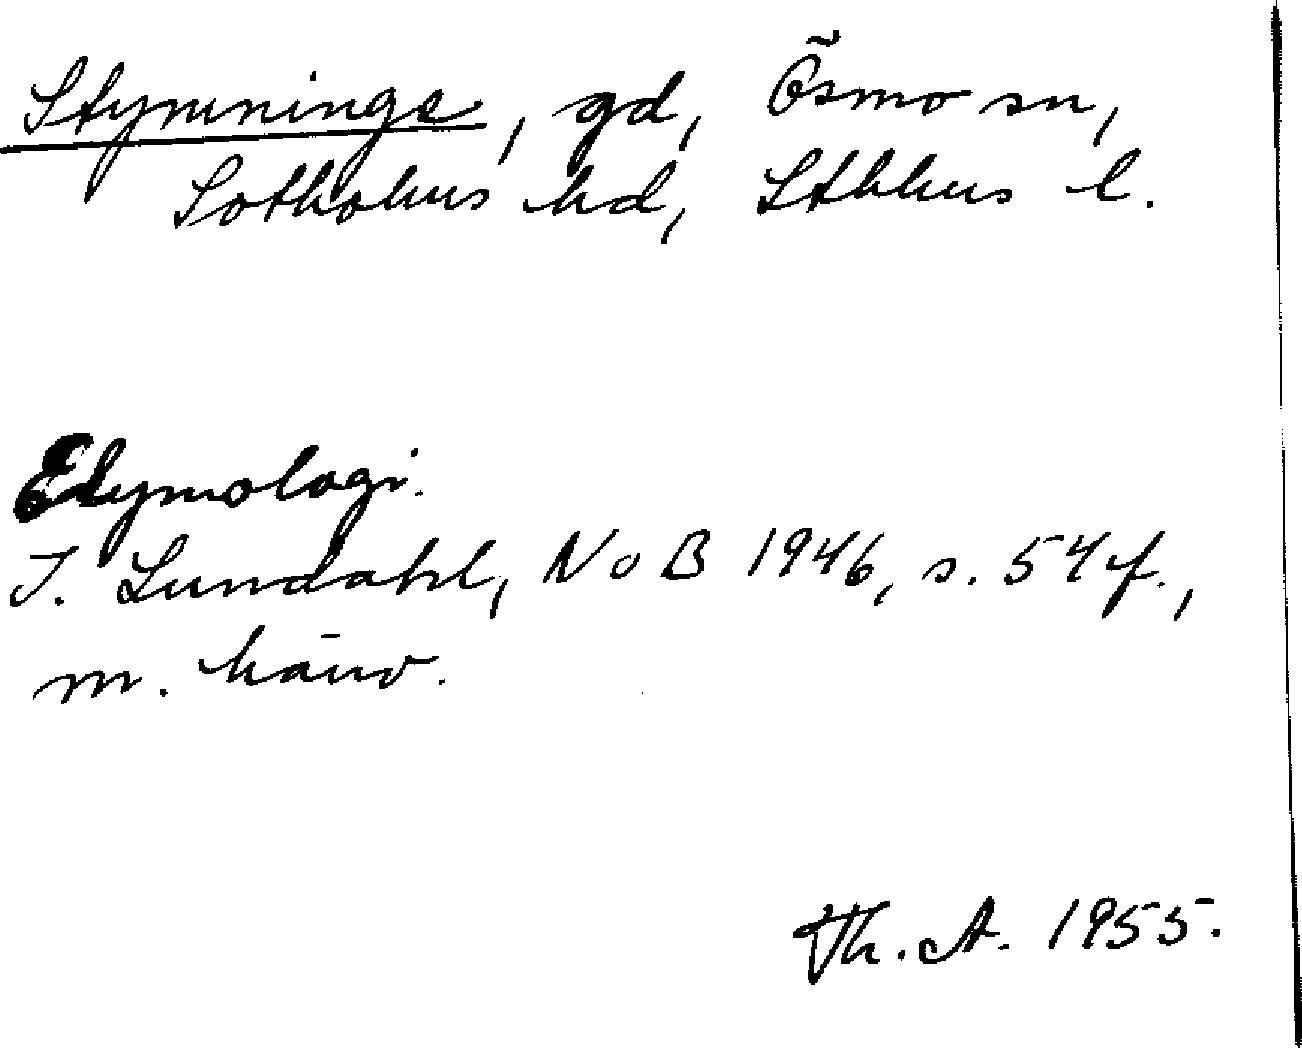 Stymninge, gd, Ösmo sn,
Sotholms hd, Sthlms l.
Etymologi.
I. Lundahl, NoB 1946, s. 54 f.,
m. hänv.
Th. A. 1955.